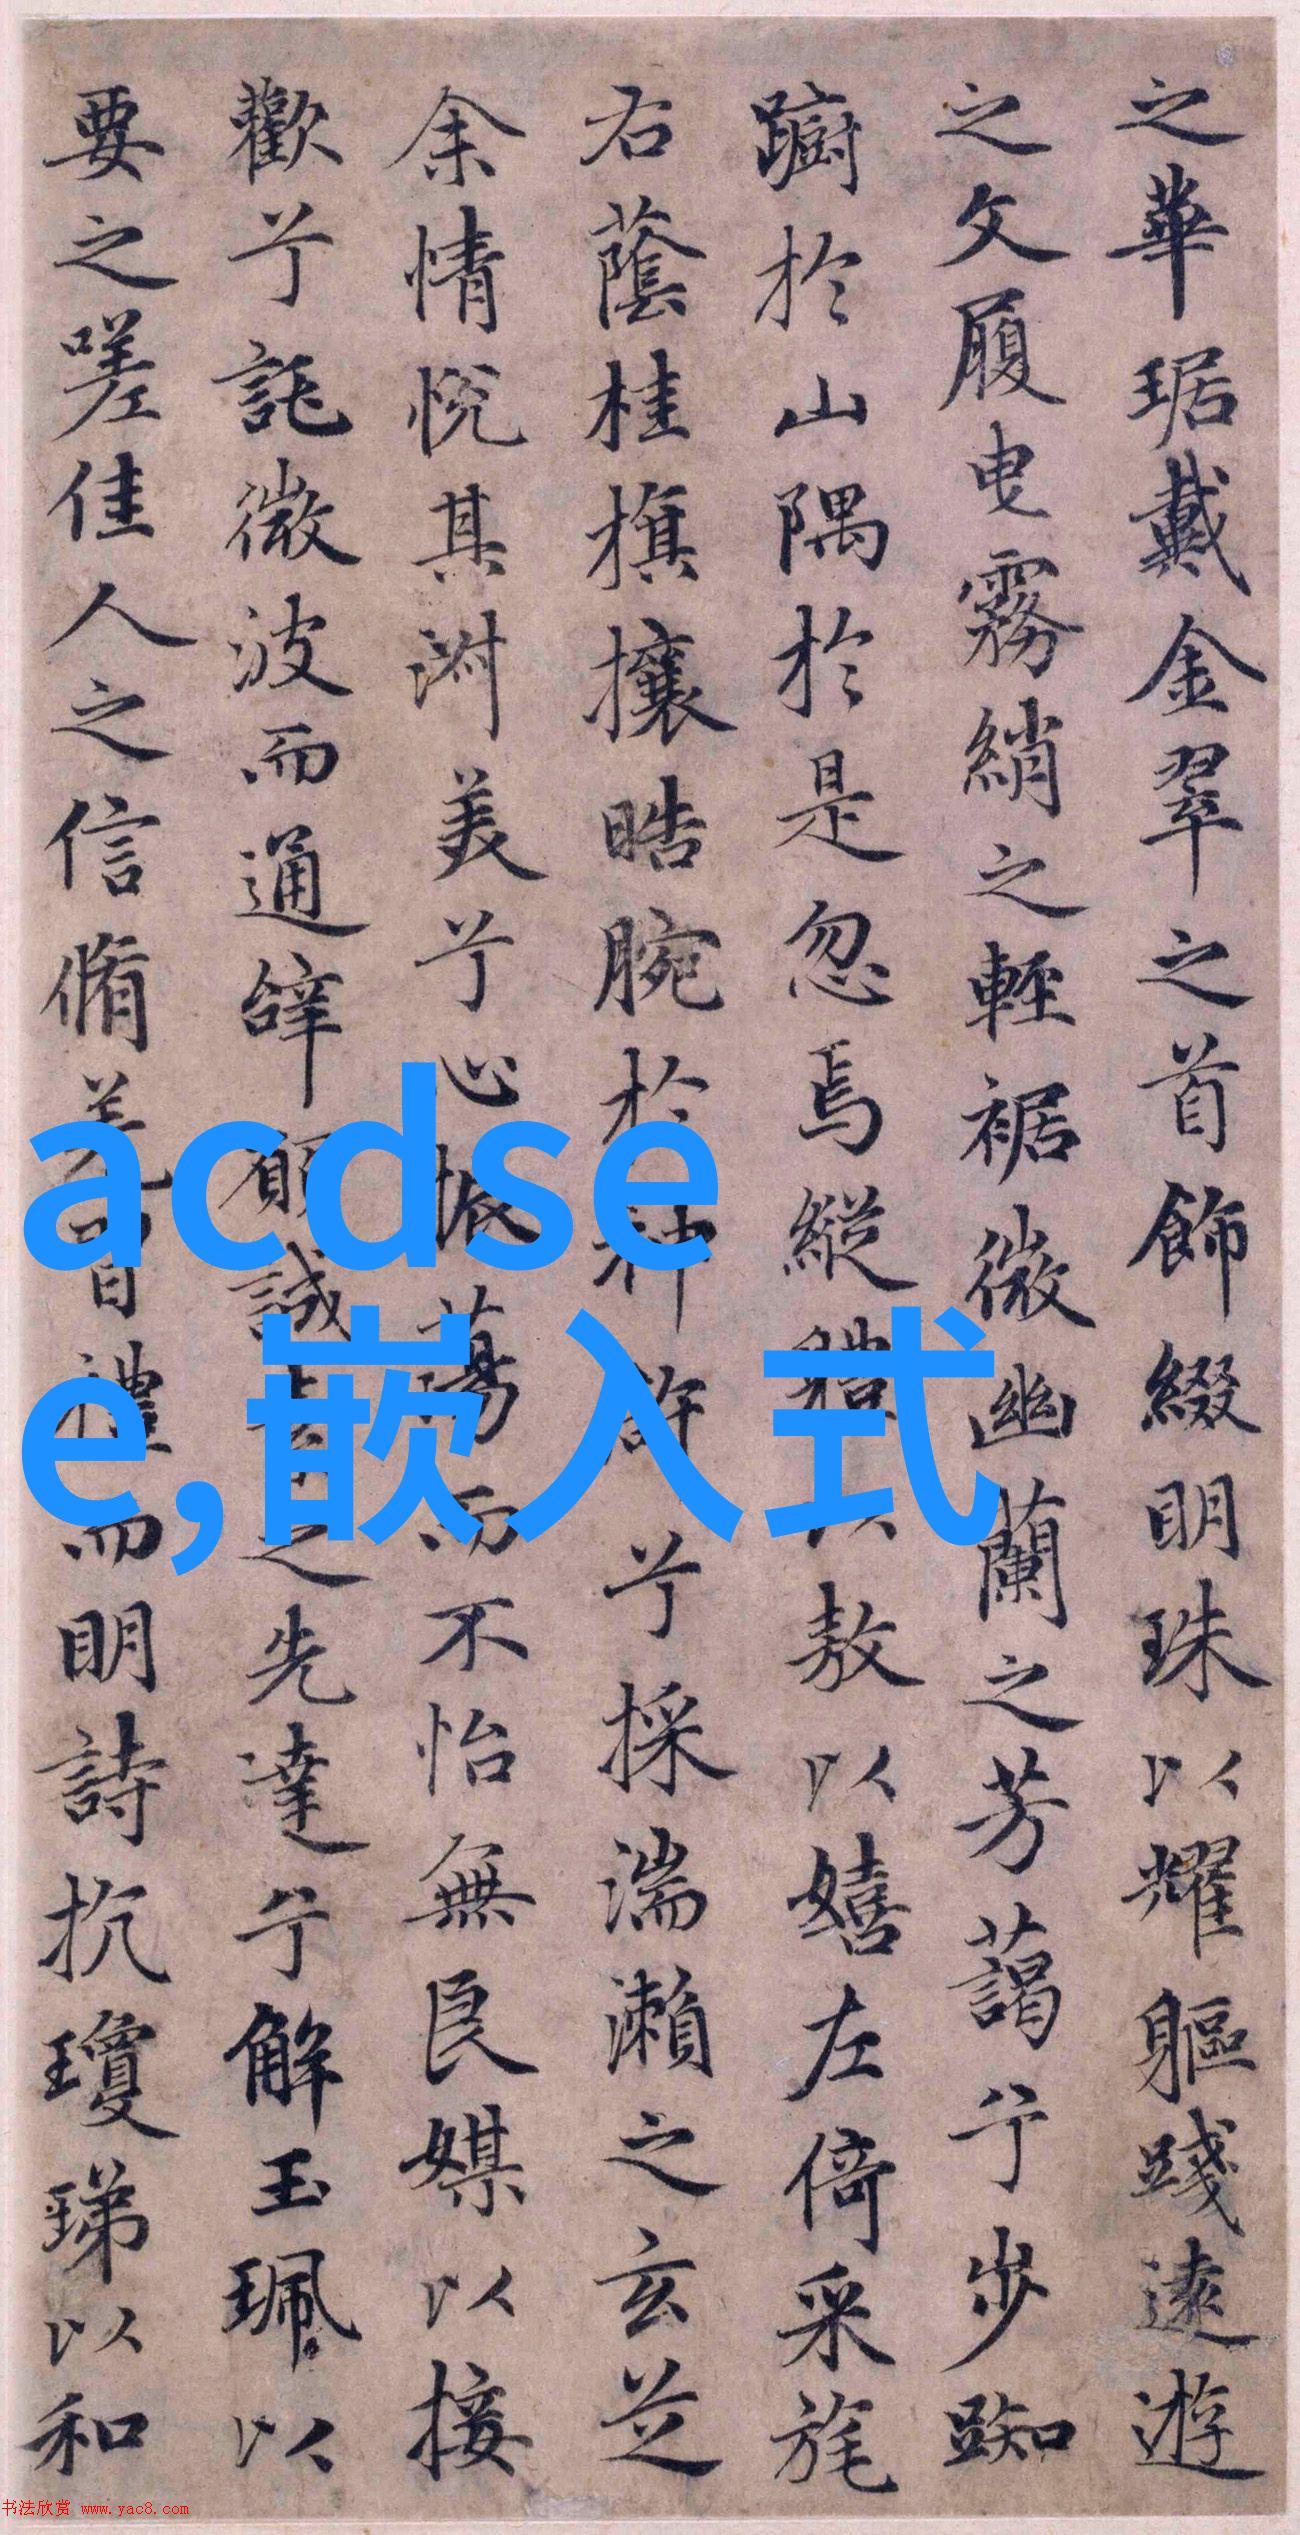 之華琚戴金翠之首飾綴明珠以耀軀踐遠遊
之文履曳霧綃之輕裾微幽蘭之芳藹兮步踟
躕於山隅於是忽焉縱體以敖以嬉左倚采旄
右蔭桂旗攘晧腕於神滸兮採湍瀨之玄芝
余情悅其淑美兮心振蕩而不怡無良媒以接
歡兮託微波而通辭願誠素之先達兮解玉珮以
要之嗟佳人之信脩羌習禮而明詩抗瓊珶以和
acdse
e,嵌入式
书法欣赏 www.yac8.com